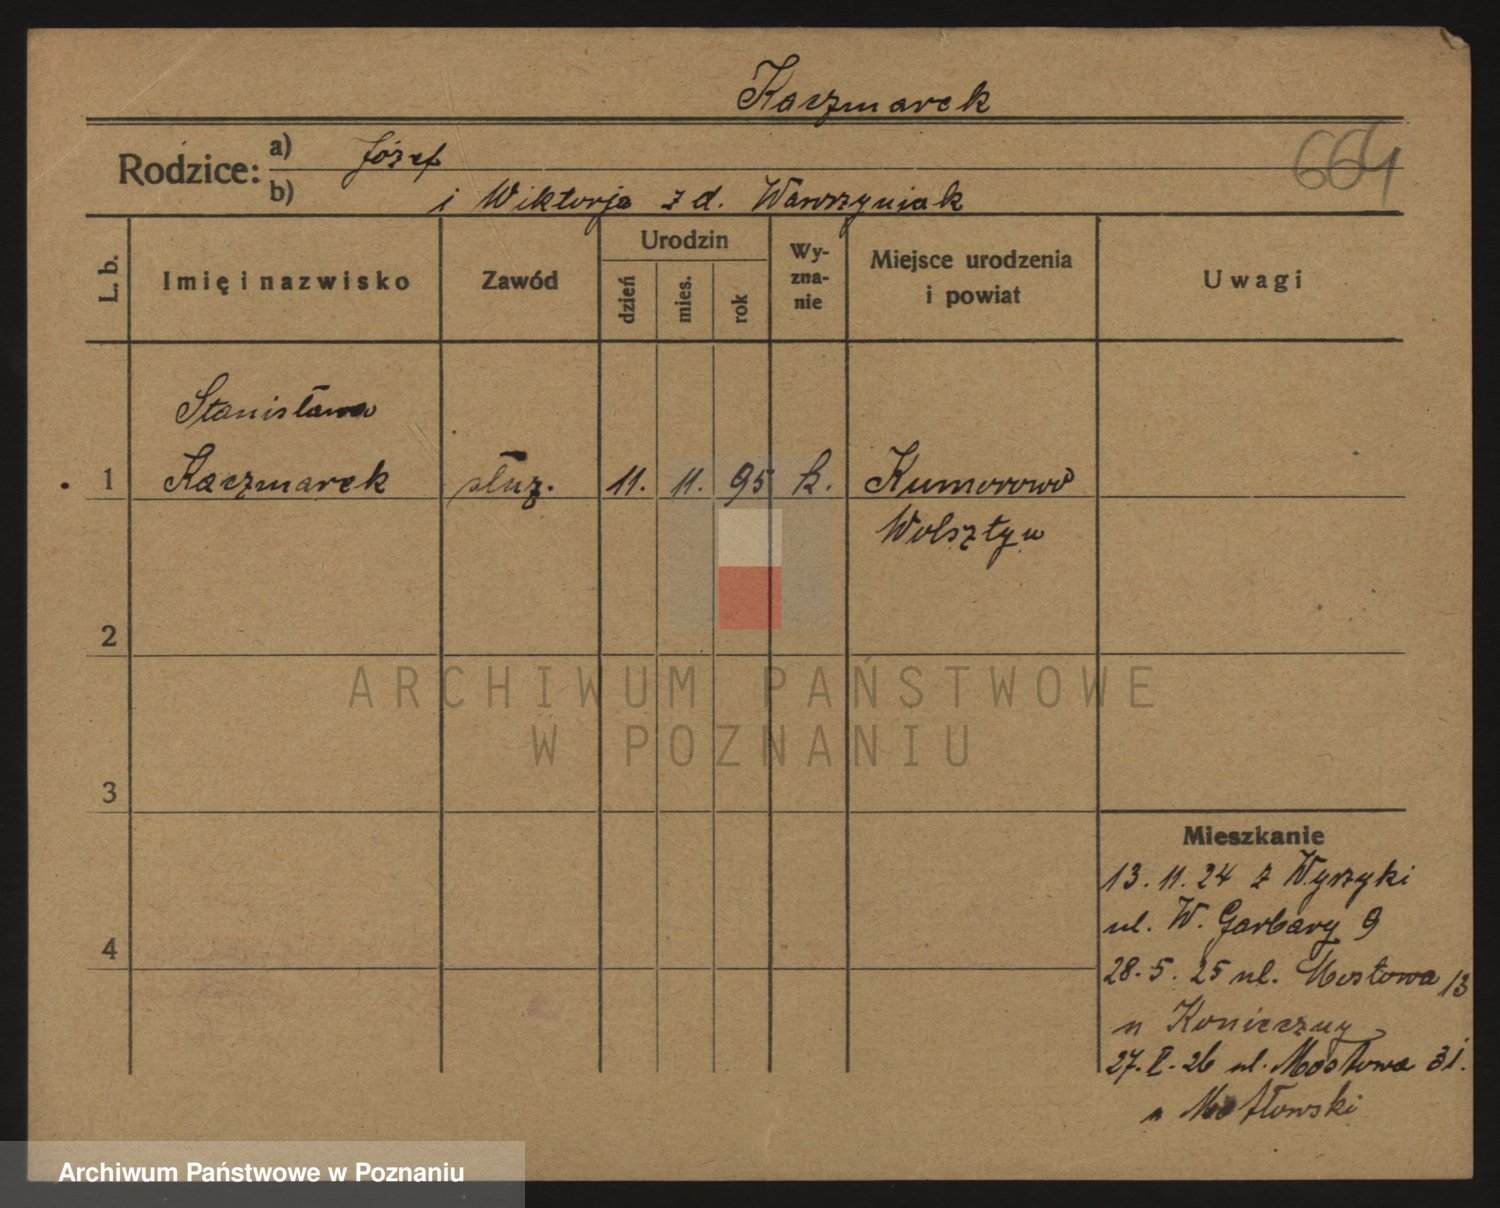 Kaczmarek
664
Rodzice:
a) Józef
b) i Wiktorja z d. Wawrzyniak
L. b.
Imię i nazwisko
Zawód
Urodzin
dzień
mies.
rok
Wy-
zna-
nie
Miejsce urodzenia
i powiat
Uwagi
Stanisława
1 Kaczmarek służ. 11. 11. 95 k. Kumorowo
Wolsztyn
2
3
4
Mieszkanie
13. 11. 24 z Wyrzyki
ul. W. Garbary 9
28. 5. 25 ul. Mostowa 13
u Konieczny
27. I. 26 ul. Mostowa 31.
u
ARCHIWUM PAŃSTWOWE
W POZNANIU
Archiwum Państwowe w Poznaniu